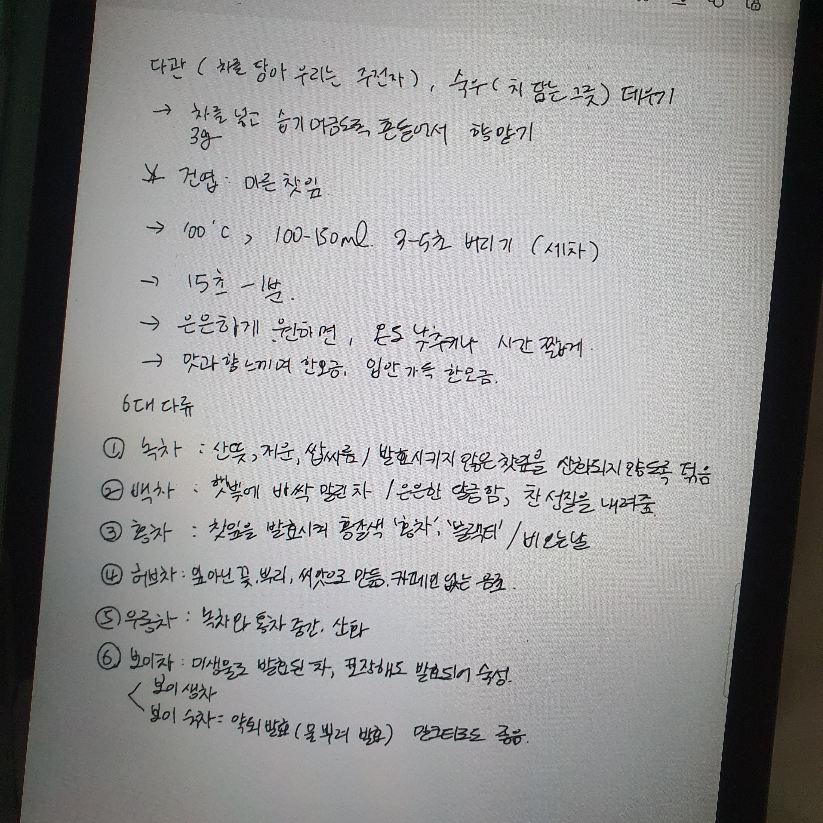 다관 ( 차를 담아 우리는 주전자 ) , 숙우 ( 차 담는 그릇 ) 데우기
→ 차를 넣고 습기 머금도록 흔들어서 향맡기
3g
* 건엽 : 마른 찻잎
→ 100°C , 100-150ml. 3-5초 버리기 (세차)
→ 15초 - 1분.
→ 은은하게 원하면, 온도 낮추거나 시간 짧게.
→ 맛과 향 느끼며 한모금, 입안 가득 한모금.
6대 다류
① 녹차 : 산뜻, 쌉싸름 / 발효시키지 않은 찻잎을 산화되지 않도록 덖음
② 백차 : 햇빛에 바싹 말린 차 / 은은한 달콤함, 찬 성질을 내려줌.
③ 홍차 : 찻잎을 발효시켜 홍갈색 '홍차', '블랙티' / 비오는날
④ 허브차 : 잎 아닌 꽃, 뿌리, 씨앗으로 만듦. 카페인 없는 음료.
⑤ 우롱차 : 녹차와 홍차 중간. 산화
⑥ 보이차 : 미생물로 발효된 차, 포장해도 발효되어 숙성.
< 보이 생차
보이 숙차 = 악퇴발효 (물 뿌려 발효) 밀크티로도 좋음.